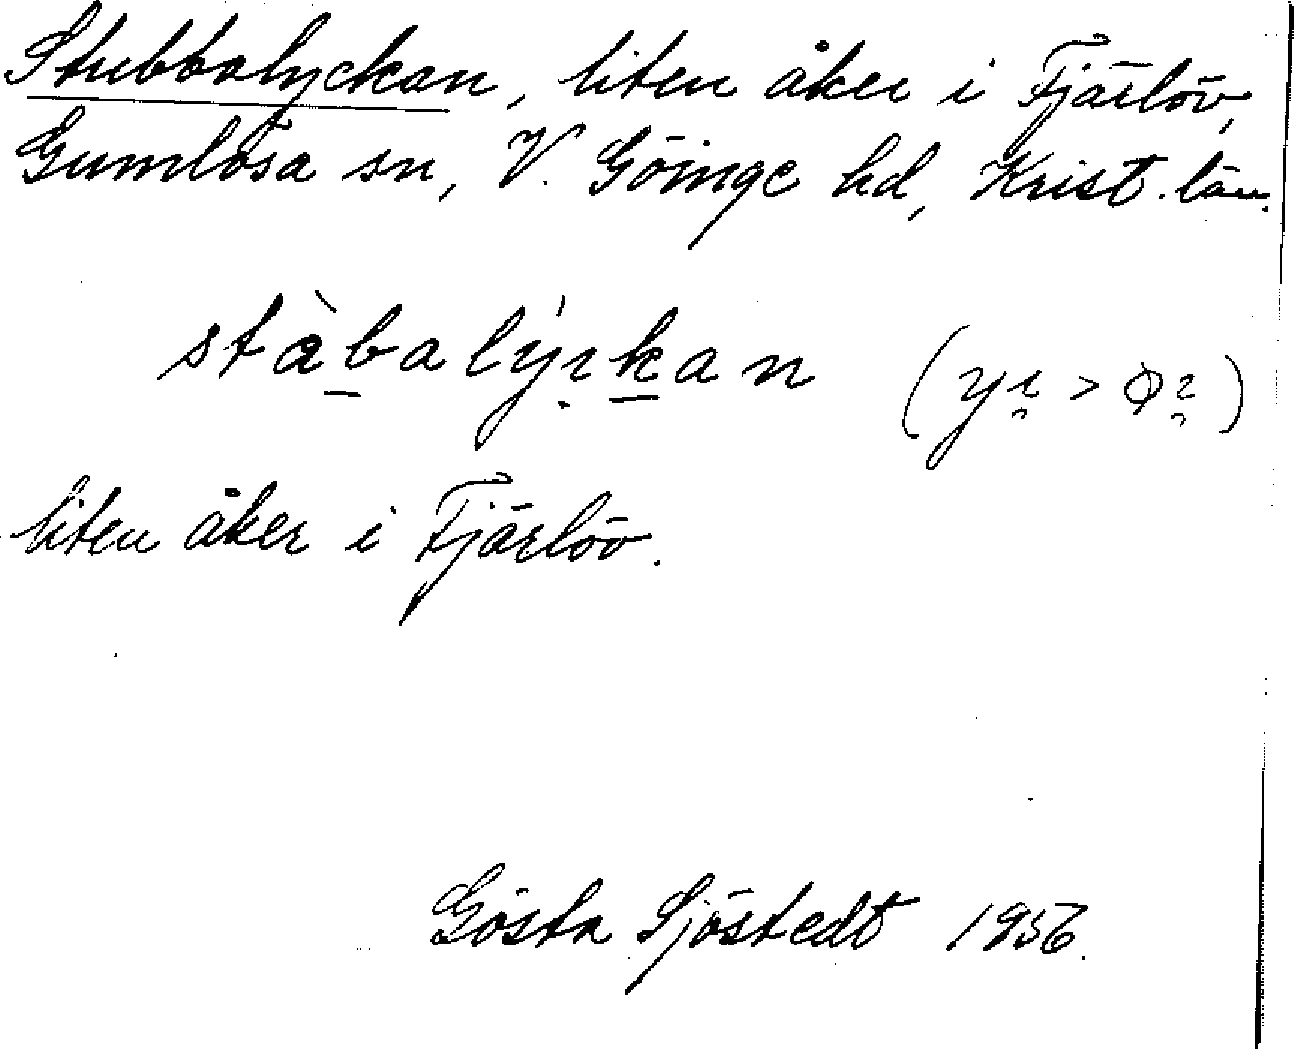 Stubbalyckan, liten åker i Fjärlöv,
Gumlösa sn, V. Göinge hd, Krist. län.
stàb̲alýı̣k̲an (yı̯ > øı̯)
liten åker i Fjärlöv.
Gösta Sjöstedt 1956.